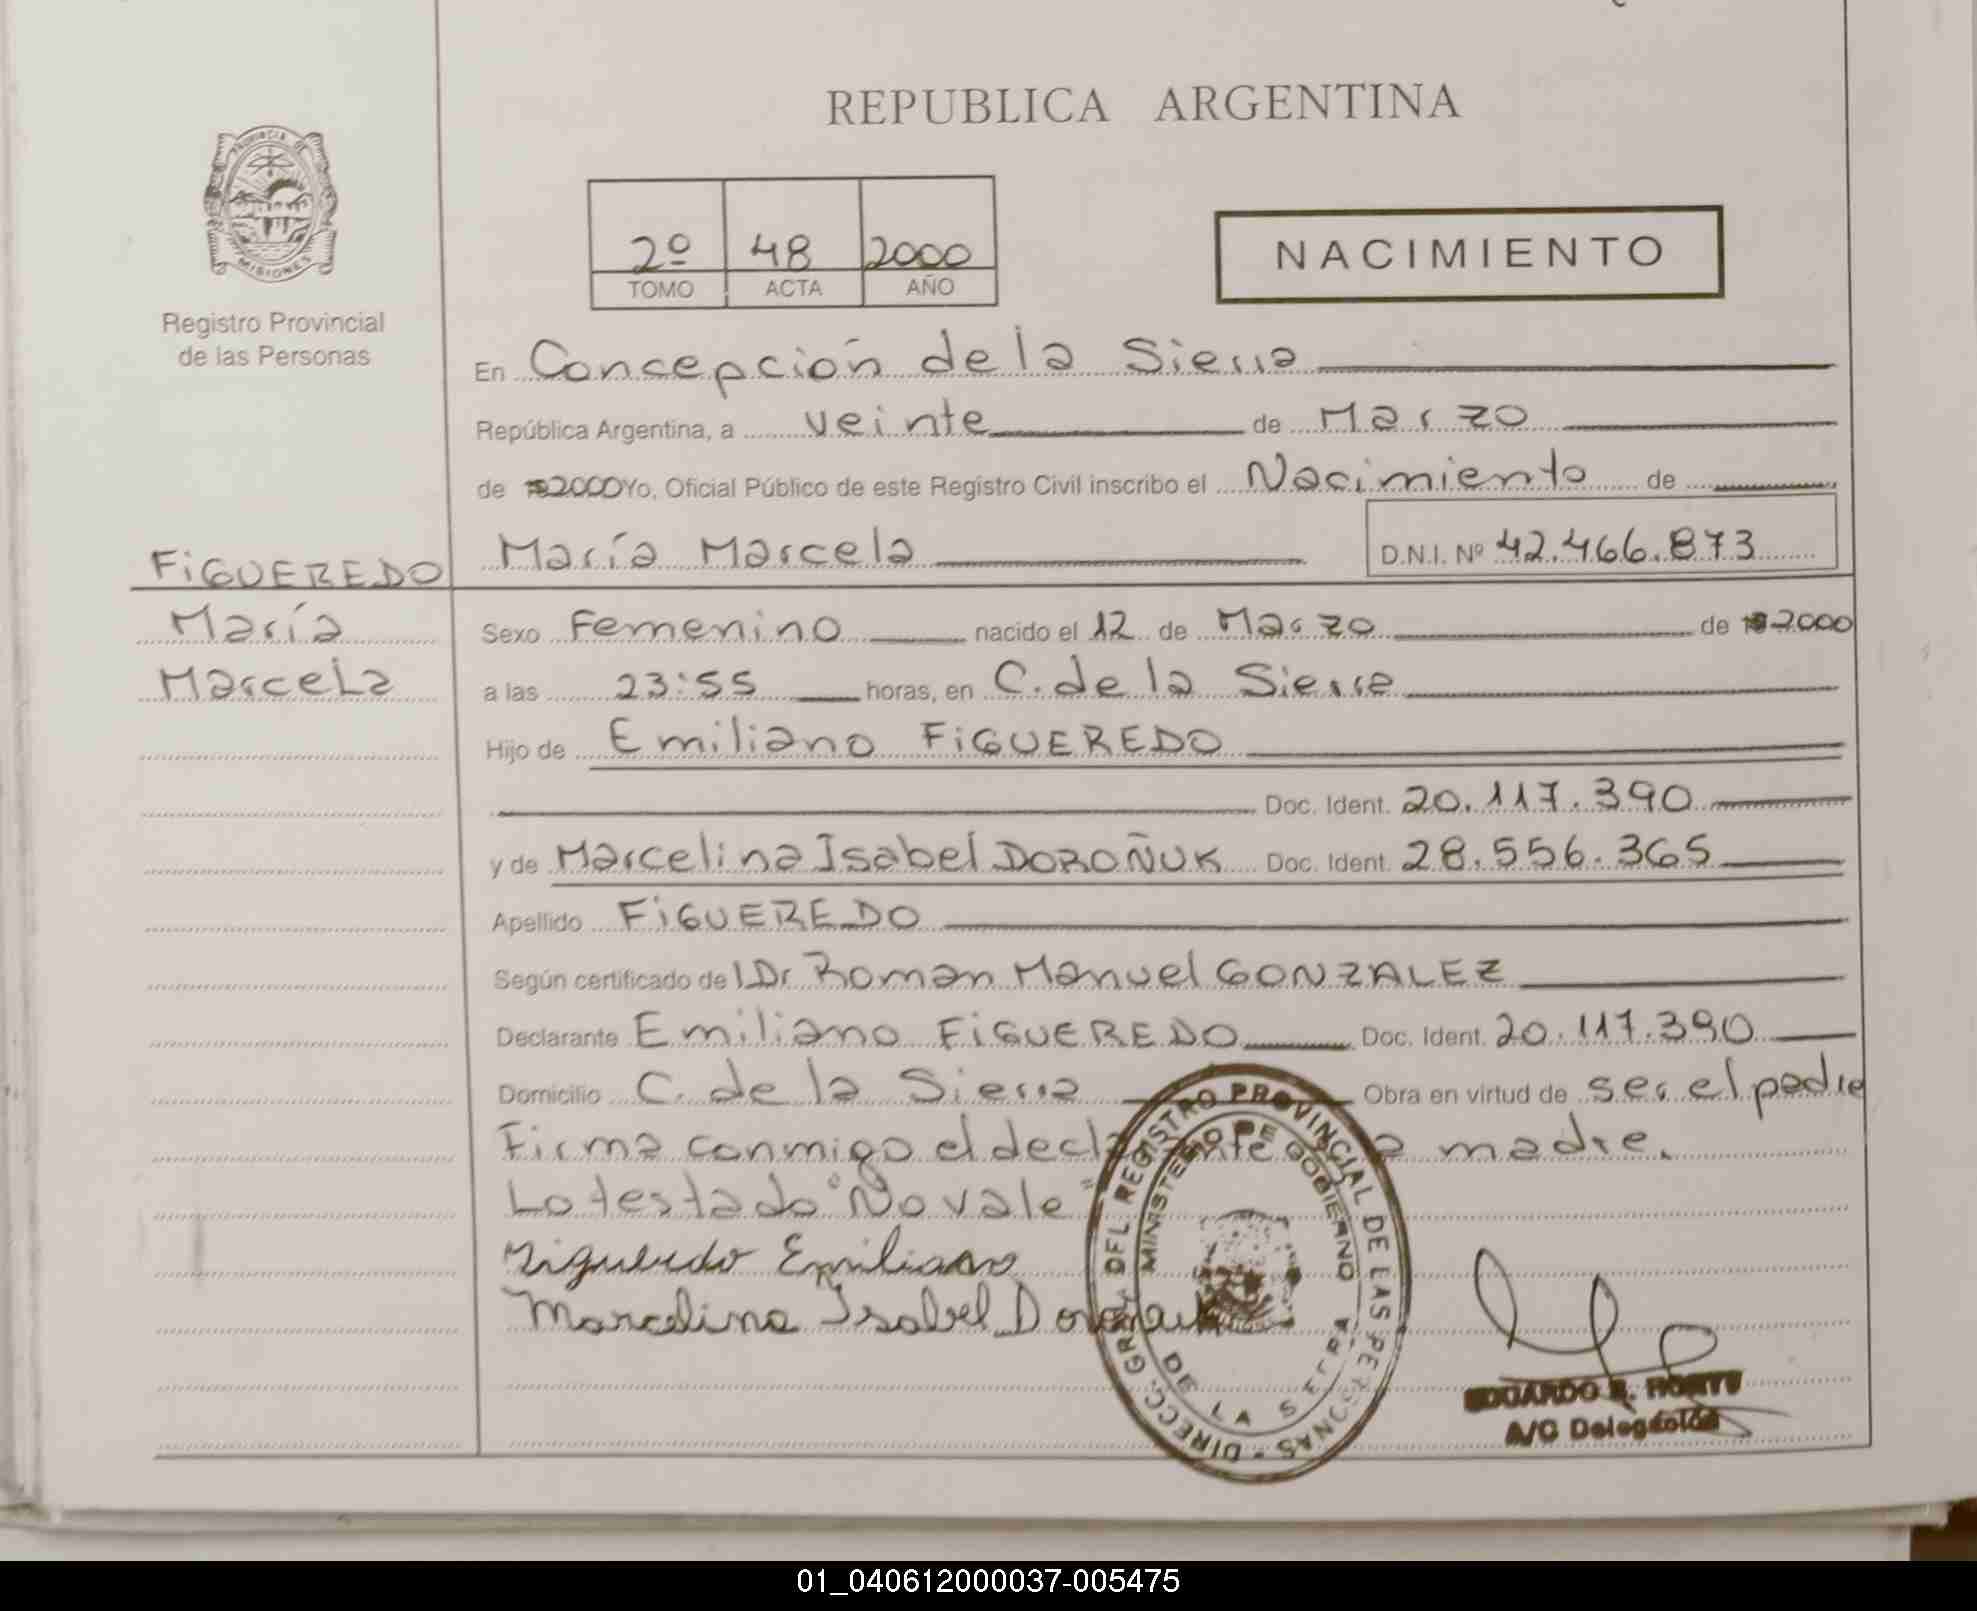 REPUBLICA ARGENTINA
PROVINCIA DE MISIONES
Registro Provincial
de las Personas
2º 48 2000
TOMO ACTA AÑO
NACIMIENTO
En Concepción de la Sierra
República Argentina, a veinte de Marzo
de 2000 Yo, Oficial Público de este Registro Civil inscribo el Nacimiento de
FiGUEREDO María Marcela D.N.I. Nº 42.466.873
María
Marcela
Sexo Femenino nacido el 12 de Marzo de 2000
a las 23:55 horas, en C. de la Sierra
Hijo de Emiliano FiGUEREDO
Doc. Ident. 20.117.390
y de Marcelina Isabel DOROÑUK Doc. Ident. 28.556.365
Apellido FiGUEREDO
Según certificado del Dr Roman Manuel GONZALEZ
Declarante Emiliano FiGUEREDO Doc. Ident. 20.117.390
Domicilio C. de la Sierra Obra en virtud de ser el padre
Firma conmigo el declarante madre.
Lo testado "No vale"
Figueredo Emiliano
Marcelina Isabel Doroñuk
DIRECC. GRAL. DEL REGISTRO PROVINCIAL DE LAS PERSONAS
MINISTERIO DE GOBIERNO
DE LA SIERRA
EDUARDO R.
A/C Delegación
01_040612000037-005475